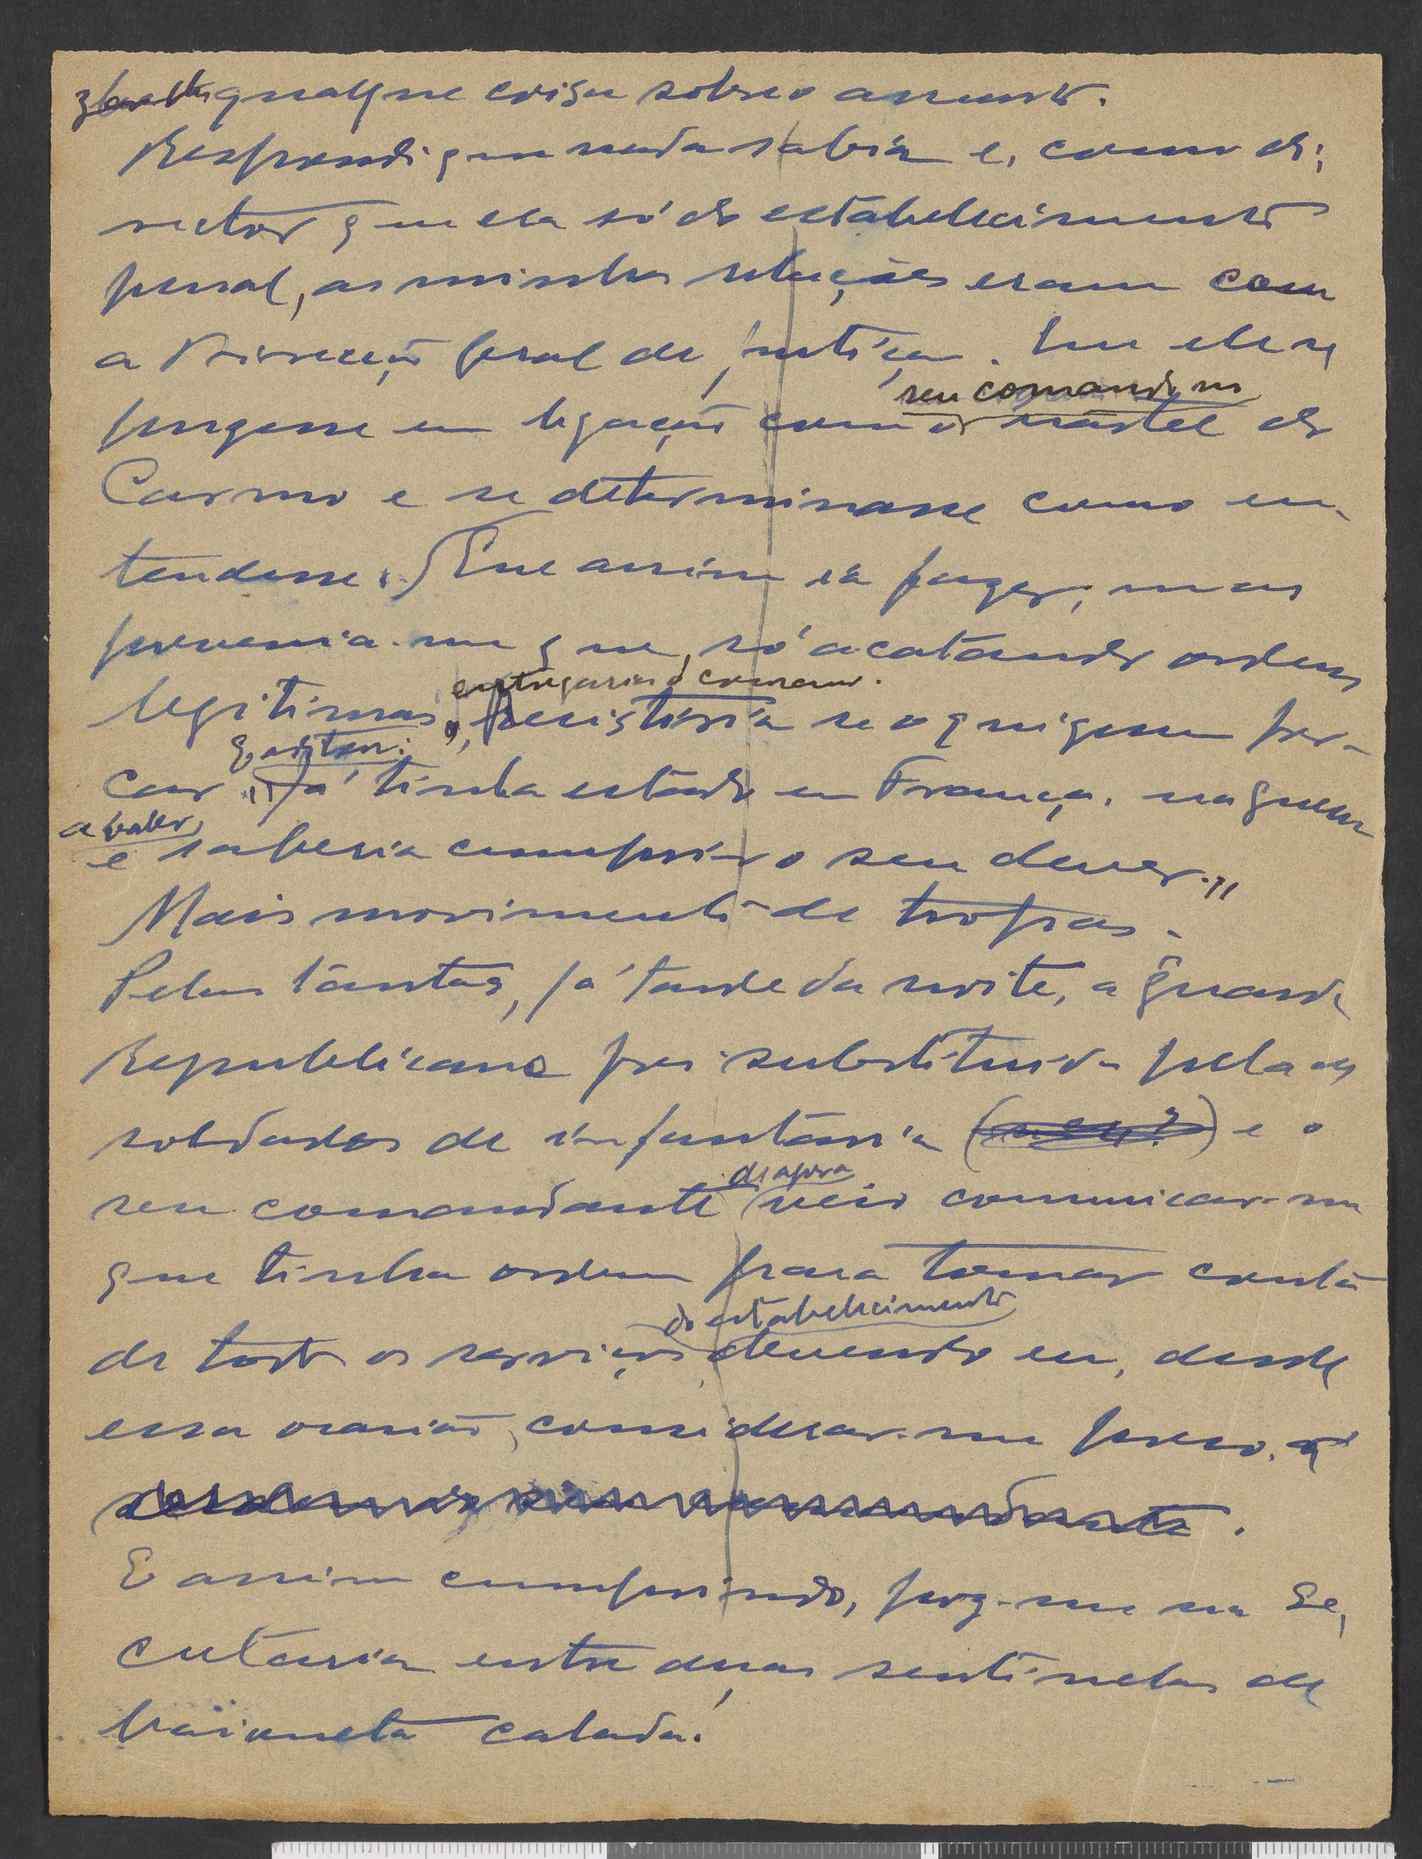 qualquer coisa sobre o assunto.
Respondi que nada sabia e, como di-
rector que era só do estabelecimento
penal, as minhas relações eram com
a Direcção Geral de justiça. Que ele se
seu comando no
pusesse em ligação com o quartel do
Carmo e se determinasse como en-
tendesse. Que assim ia fazer; mas
prevenia-me que, só acatando ordens
entregaria o comando.
legitimas, resistiria se o quisessem for-
çar. "Já tinha estado em França, na guerra
a bater,
e saberia cumprir o seu dever."
Mais movimento de tropas.
Pelas tantas, já tarde da noite, a Guarda
Republicana foi substituida pelos
soldados de infantaria e o
de agora
seu comandante veio comunicar-me
que tinha ordem para tomar conta
do estabelecimento
de todos os serviços, devendo eu, desde
essa ocasião, considerar-me preso.
E assim cumprindo, fez-me na Se-
cretaria entre duas sentinelas de
baioneta calada.